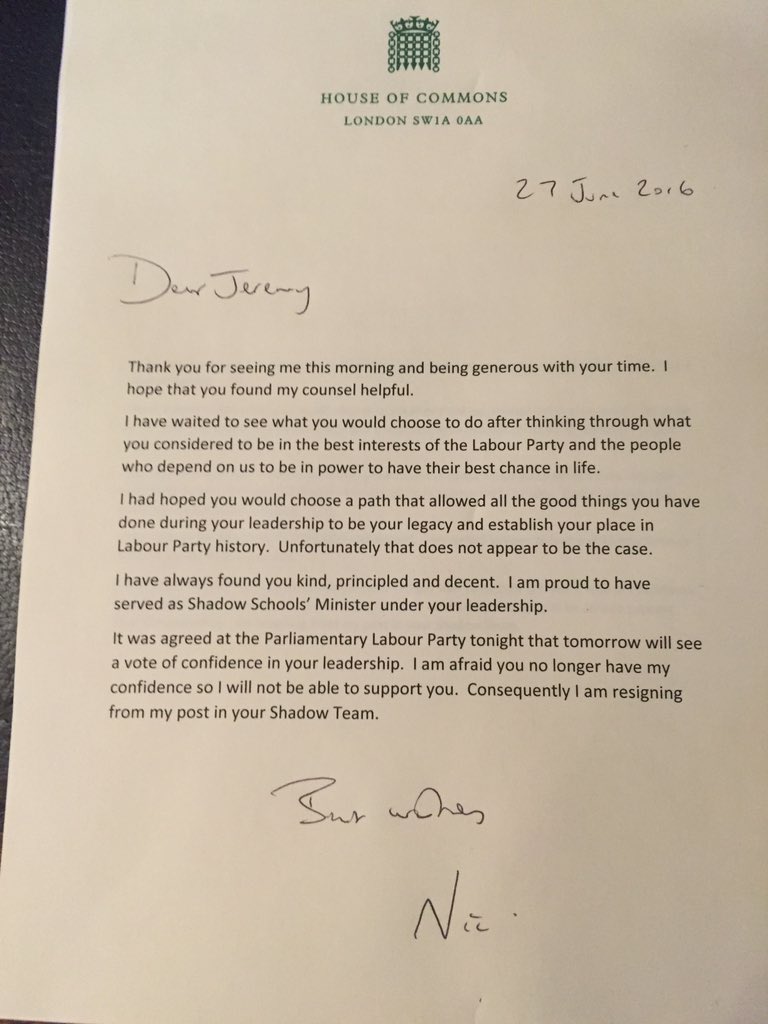 HOUSE OF COMMONS
LONDON SW1A 0AA
27 June 2016
Dear Jeremy
Thank you for seeing me this morning and being generous with your time.  I
hope that you found my counsel helpful.
I have waited to see what you would choose to do after thinking through what
you considered to be in the best interests of the Labour Party and the people
who depend on us to be in power to have their best chance in life.
I had hoped you would choose a path that allowed all the good things you have
done during your leadership to be your legacy and establish your place in
Labour Party history.  Unfortunately that does not appear to be the case.
I have always found you kind, principled and decent.  I am proud to have
served as Shadow Schools’ Minister under your leadership.
It was agreed at the Parliamentary Labour Party tonight that tomorrow will see
a vote of confidence in your leadership.  I am afraid you no longer have my
confidence so I will not be able to support you.  Consequently I am resigning
from my post in your Shadow Team.
Best wishes
Nic